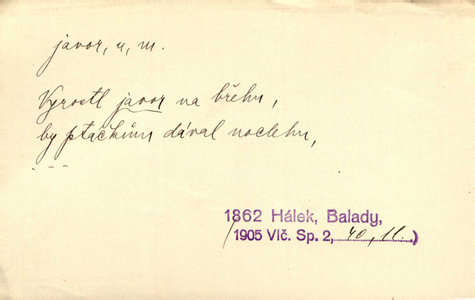 javor, u, m.
Vyrostl javor na břehu,
by ptačkům dával noclehu,
---
1862 Hálek, Balady,
/1905 Vlč. Sp. 2, 40, 11.)